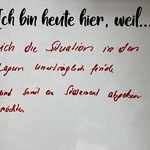 Ich bin heute hier, weil...
ich die Situation in den
Lagern unerträglich finde
und somit ein Statement abgeben
möchte